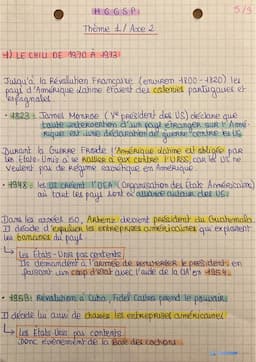 H G G S P
5/9
Thème 1 / Axe 2
4) LE CHILI DE 1970 À 1973
Jusqu'à la Révolution Française (environ 1800-1820) les
pays d'Amérique Latine étaient des colonies portugaises et
espagnoles
• 1823 : James Monroe (Ve président des US) déclare que
toute intervention d'un pays étranger sur l'Amé-
rique est une déclaration de guerre contre les US
Durant la Guerre Froide l'Amérique Latine est obligée par
les États-Unis à se rallier à eux contre l'URSS car les US ne
veulent pas de régime soviétique en Amérique
• 1948 : les US créent l'OEA (Organisation des États Américains)
où tout les pays sont alliés autour des US
Dans les années 50, Arbenz devient président du Guatemala
Il décide d'expulser les entreprises américaines qui exploisent
les bananes du pays
↳ les États-Unis pas contents
Ils demandent à l'armée de renverser le président en
faisant un coup d'état avec l'aide de la CIA en 1954
• 1959 : Révolution à Cuba, Fidel Castro prend le pouvoir
Il décide lui aussi de chasser les entreprises américaines
↳ les États-Unis pas contents
Donc évènement de la Baie des cochons